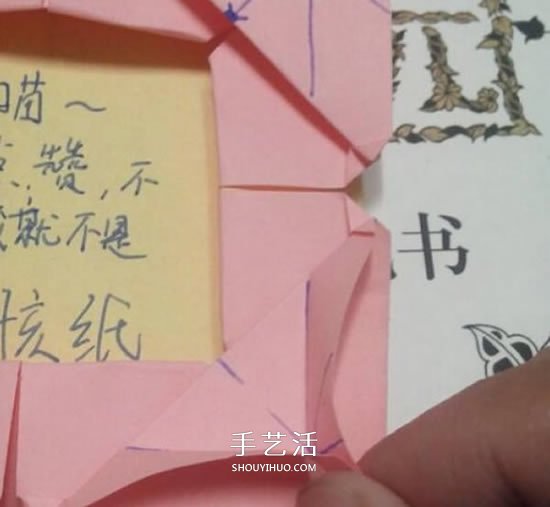 喵～
赞，不
就不是
孩纸
书
手艺活
SHOUYIHUO.COM